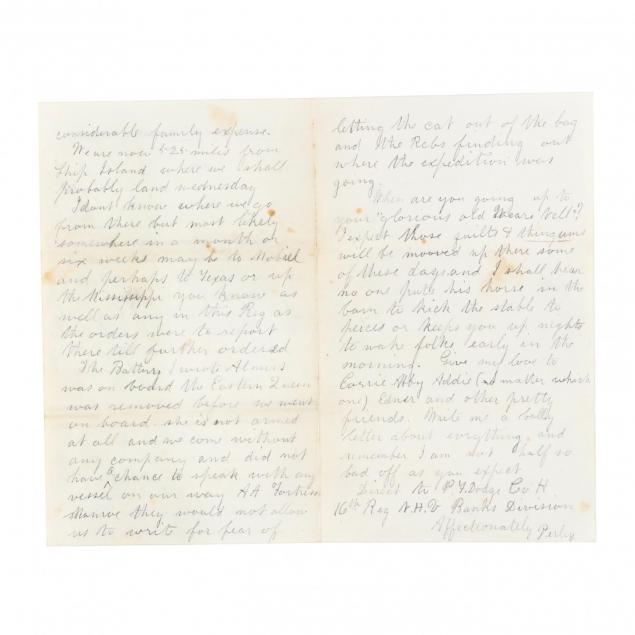 considerable family expense.
We are now 525 miles from
Ship Island where we shall
probably land wednesday
I dont know where we go
from there but most likely
somewhere in a month or
six weeks may be to Mobiel
and perhaps to Texas or up
the Mississippi you know as
well as any in this Reg as
the orders were to report
there till further ordered
The Battery I wrote Almers
was on board the Eastern Queen
was removed before we went
on board she is not armed
at all and we come without
any company and did not
have a chance to speak with any
vessel on our way AA Fortress
Monroe they would not allow
us to write for fear of
letting the cat out of the bag
and the Rebs finding out
where the expedition was
going.
When are you going up to
your "glorious old Weare Well"?
I expect those quilts & thingums
will be mooved up there some
of these days and I shall hear
no one puts his horse in the
barn to kick the stable to
peices or keeps you up nights
to wake folks early in the
morning. Give my love to
Carrie Abby Addie (no matter which
one) Edner and other pretty
friends. Write me a bully
letter about evrything and
remember I am not half so
bad off as you expect
Direct to P. F. Dodge Co H
16th Reg N.H.V Banks Division
Affectionately Perley